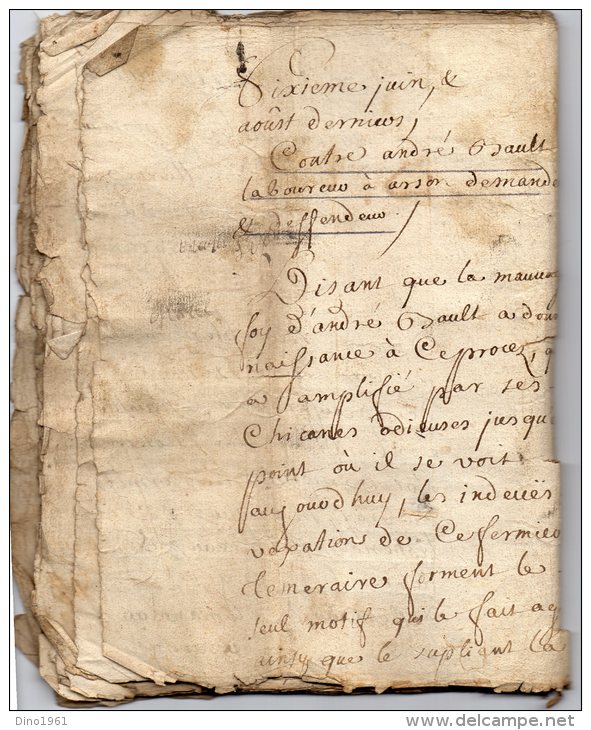 Sixieme juin, &
aoûst derniers,
Contre andré Gsault
laboureur à arson demande
& deffendeur.
Disant que la mauvai
foy d'andré Gsault a don
naissance à Ce procez, q
a amplifié par ses
Chicanes odieuses jusqu
point où il se voit
aujourdhuy, les indeuës
vexations de Ce fermier
temeraire forment le
seul motif qui le fait ag
ainsy que le supliant la
Dino1961
delcampe.net